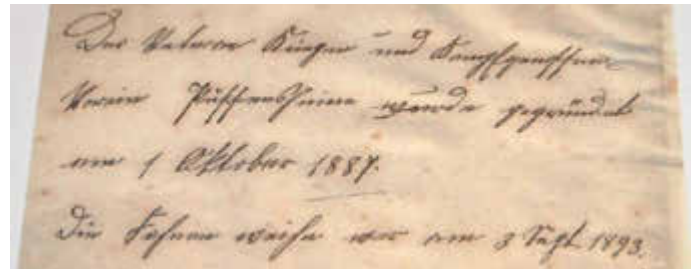 Der Veteranen Krieger und Kampfgenossen
Verein Püssensheim wurde gegründet
am 1 Oktober 1887.
Die Fahnen weihe war am 3 Sept. 1893.